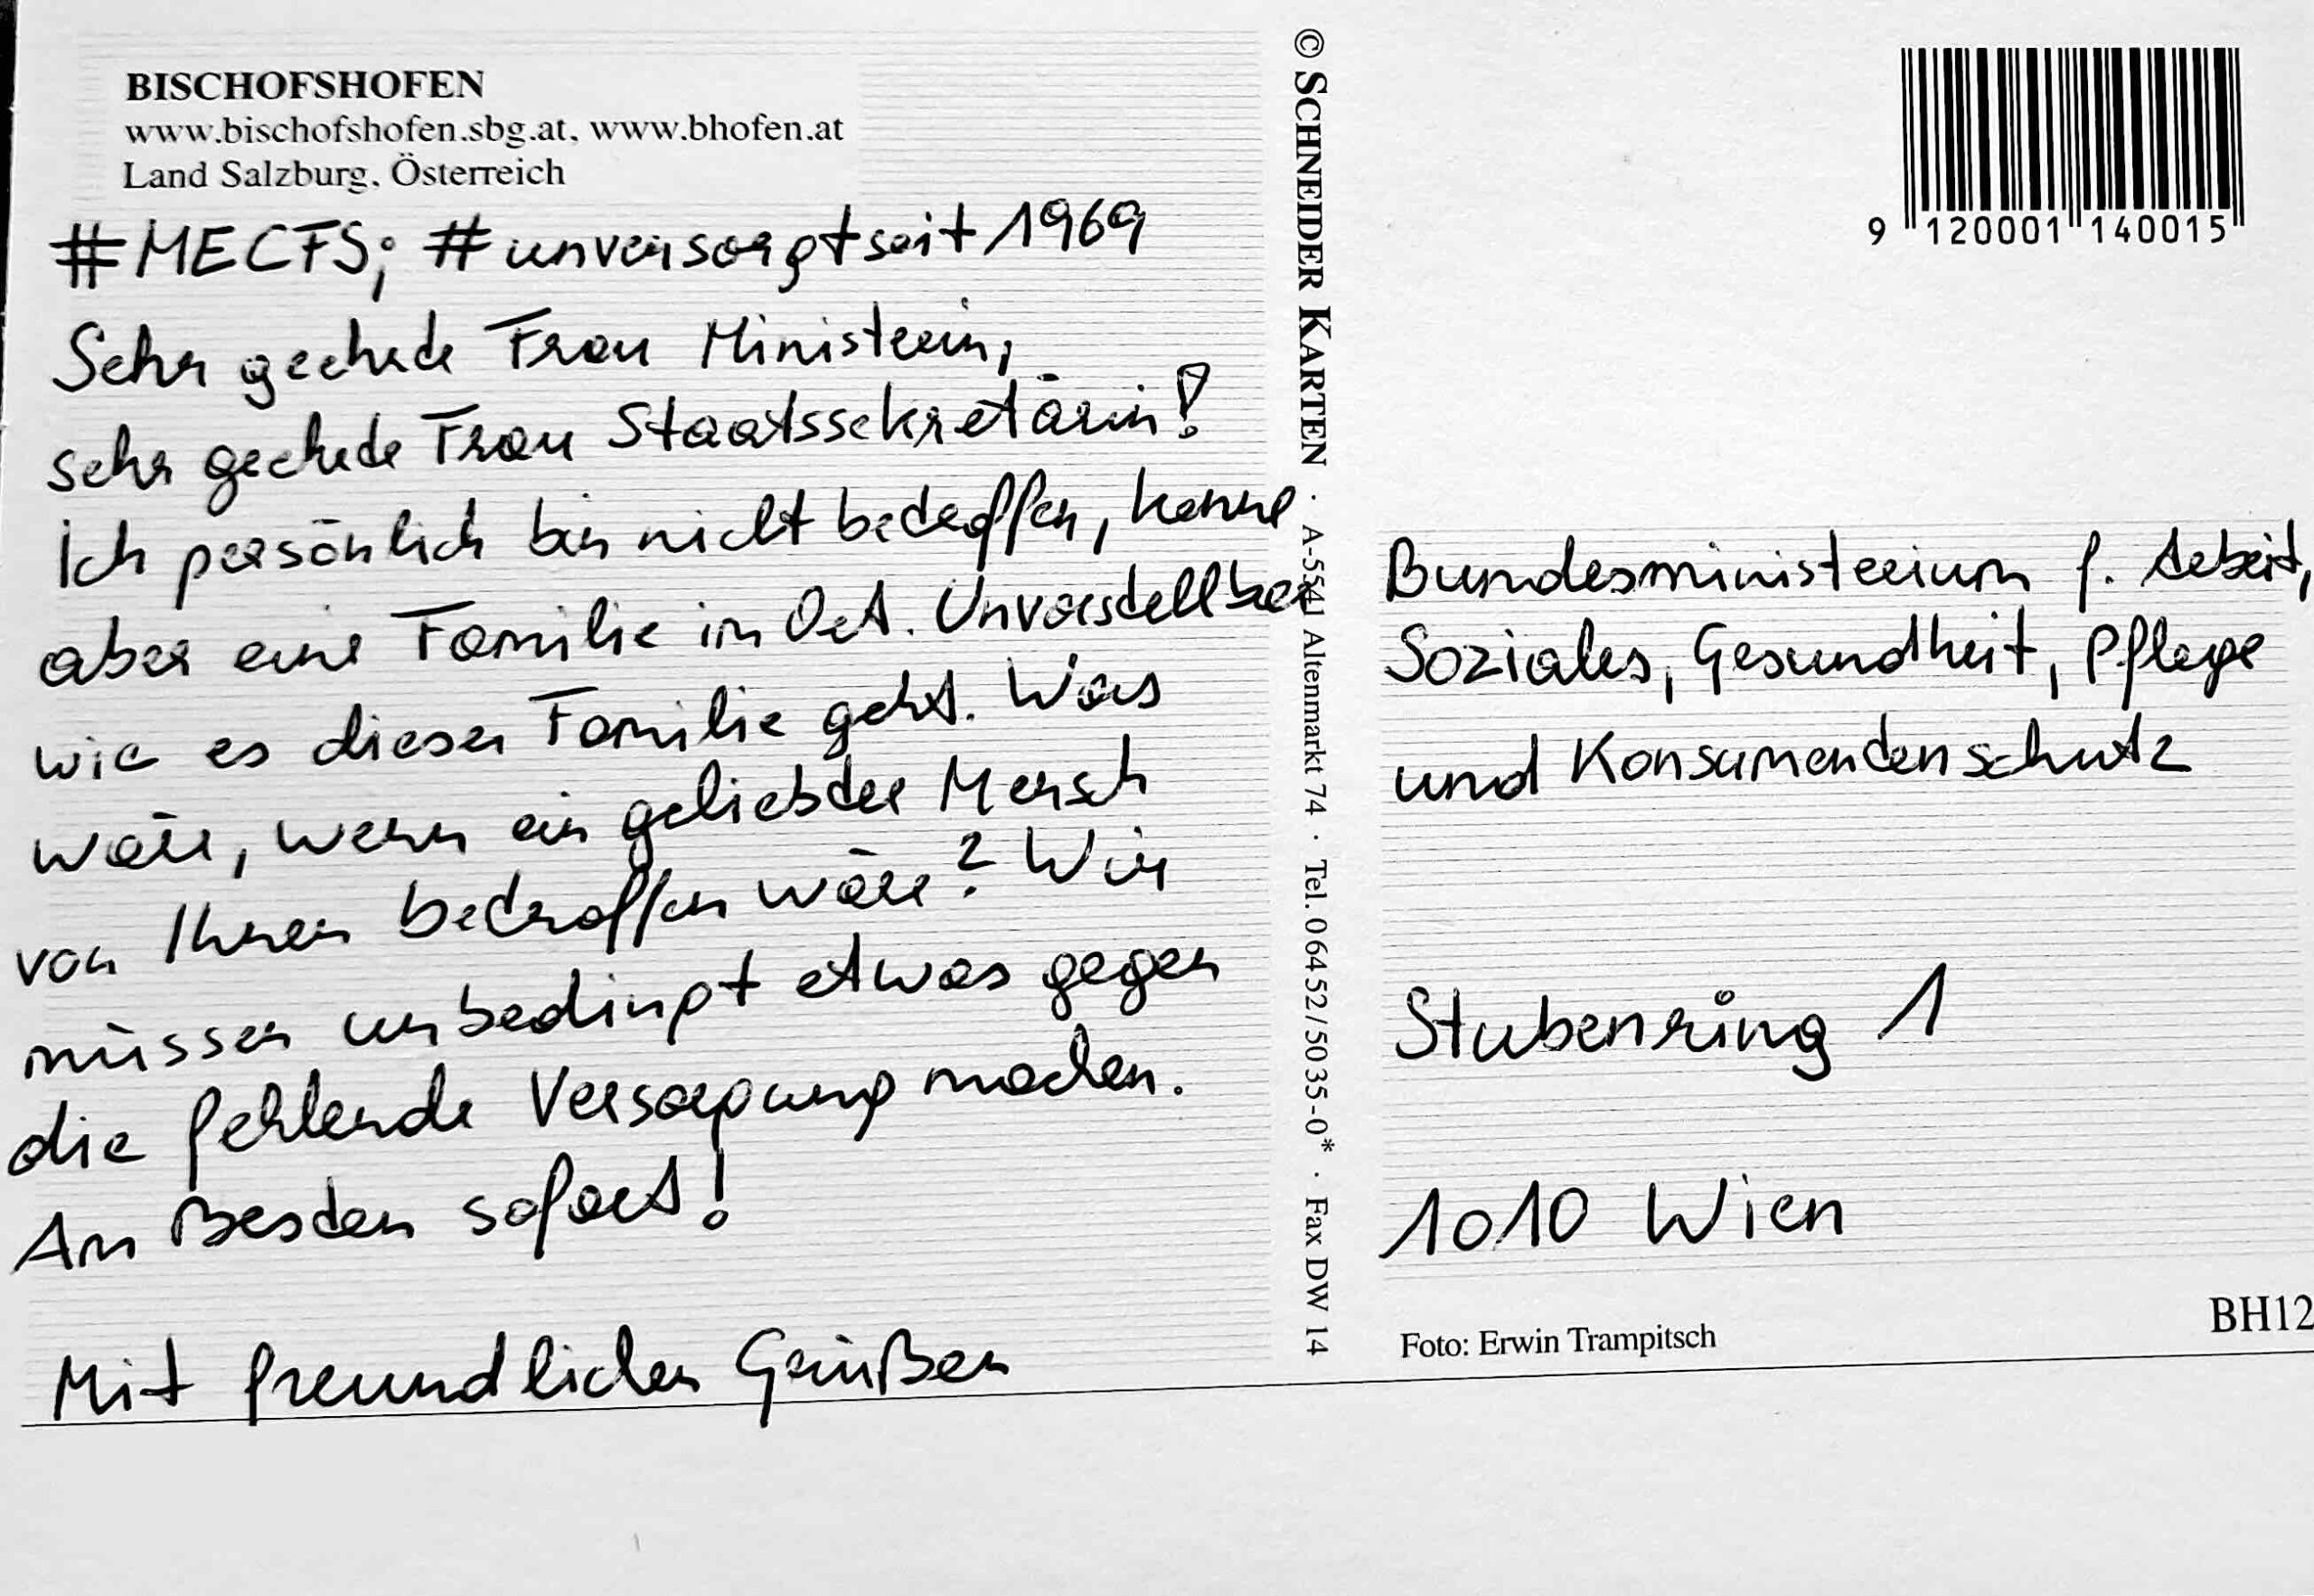 BISCHOFSHOFEN
www.bischofshofen.sbg.at, www.bhofen.at
Land Salzburg, Österreich
#MECFS; #unversorgtseit1969
Sehr geehrte Frau Ministerin,
sehr geehrte Frau Staatssekretärin!
Ich persönlich bin nicht betroffen, kenne
aber eine Familie im Ort. Unvorstellbar
wie es dieser Familie geht. Was
wäre, wenn ein geliebter Mensch
von Ihnen betroffen wäre? Wir
müssen unbedingt etwas gegen
die fehlende Versorgung machen.
Am Besten sofort!
Mit freundlichen Grüßen
© SCHNEIDER KARTEN · A-5541 Altenmarkt 74 · Tel. 06452/5035-0* · Fax DW 14
9 120001 140015
Bundesministerium f. Arbeit,
Soziales, Gesundheit, Pflege
und Konsumentenschutz
Stubenring 1
1010 Wien
Foto: Erwin Trampitsch
BH12